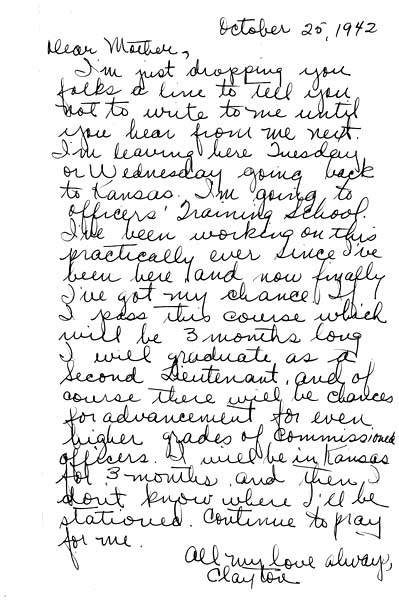 October 25, 1942
Dear Mother,
I'm just dropping you
folks a line to tell you
not to write to me until
you hear from me next.
I'm leaving here Tuesday
or Wednesday going back
to Kansas. I'm going to
Officers' Training School.
I've been working on this
practically ever since I've
been here and now finally
I've got my chance. If
I pass this course which
will be 3 months long
I will graduate as a
Second Lieutenant, and of
course there will be chances
for advancement for even
higher grades of Commissioned
officers. I will be in Kansas
for 3 months and then I
don't know where I'll be
stationed. Continue to pray
for me.
All my love always,
Clayton